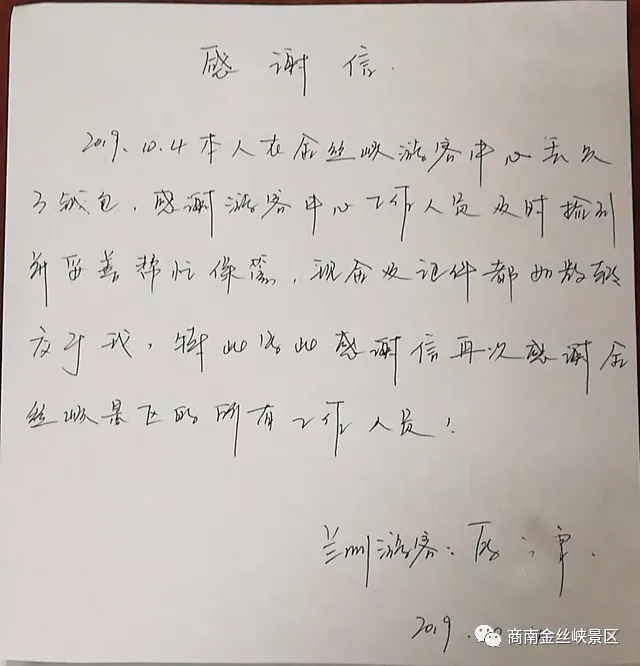 感谢信.
2019.10.4本人在金丝峡游客中心丢失
了钱包,感谢游客中心工作人员及时捡到
并妥善帮忙保管,现金及证件都如数转
交于我,特此写此感谢信再次感谢金
丝峡景区的所有工作人员!
兰州游客:
2019.
商南金丝峡景区